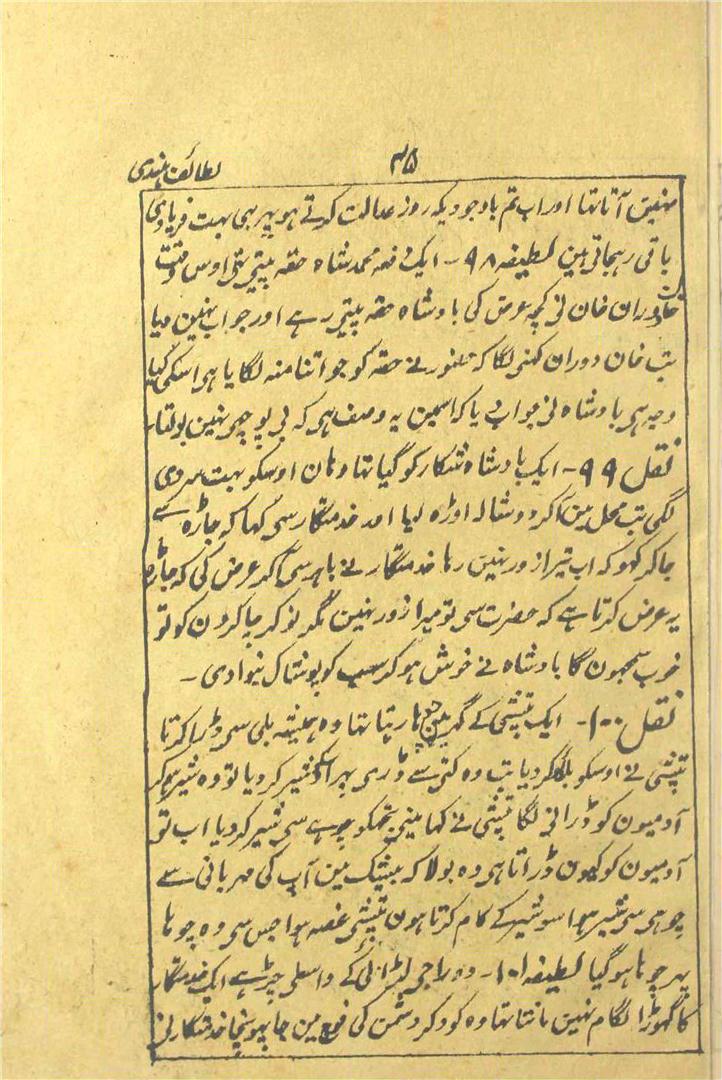 ۴۵ لطائف ہندی
نہین آتا تہا اور اب تم باوجودیکہ روز عدالت کرتے ہو پہر بہی بہت فریادی
باقی رہجاتی ہین لطیفہ ۹۸ - ایک دفعہ محمد شاہ حقہ پیتی تہی اوس وقت
خاندوران خان نی کچہ عرض کی بادشاہ حقہ پیتی رہے اور جواب نہین دیا
تب خان دوران کہنی لگا کہ حضور نے حقہ کو جو اتنا منہ لگایا ہی اسکی کیا
وجہ ہی بادشاہ نی جواب دیا کہ اسمین یہ وصف ہی کہ بی پوچہی نہین بولتا
نقل ۹۹ - ایک بادشاہ شکار کو گیا تہا وہان اوسکو بہت سردی
لگی تب محل مین آکر دوشالہ اوڑہ لیا اور خدمتگار سی کہا کہ جاڑہ سے
جاکر کہو کہ اب تیرا زور نہین رہا خدمتگار نے باہر سی آکر عرض کی کہ جاڑہ
یہ عرض کرتا ہے کہ حضرت سی تو میرا زور نہین مگر نوکر چاکرون کو تو
خوب سمجہون گا بادشاہ نے خوش ہوکر سب کو پوشاک بنوا دی -
نقل ۱۰۰ - ایک تپشی کے گہر مین چوہا رہتا تہا وہ ہمیشہ بلی سی ڈرا کرتا
تپشی نے اوسکو بلا کر دیا تب وہ کتی سے ڈری پہر اسکو شیر کر دیا تو وہ شیر ہوکر
آدمیون کو ڈرانی لگا تپشی نے کہا مینی تجہکو چوہے سی شیر کر دیا اب تو
آدمیون کو کیون ڈراتا ہی وہ بولا کہ بیشک مین آپ کی مہربانی سے
چوہی سی شیر ہوا سو شیر کے کام کرتا ہون تپشی غصہ ہوا جس سی وہ چوہا
پہر چوہا ہو گیا لطیفہ ۱۰۱ - دو راجی لڑائی کے واسطی چڑہے ایک خدمتگار
کا گہوڑا لگام نہین مانتا تہا وہ کود کر دشمن کی فوج مین جا پہونچا خدمتگار نی